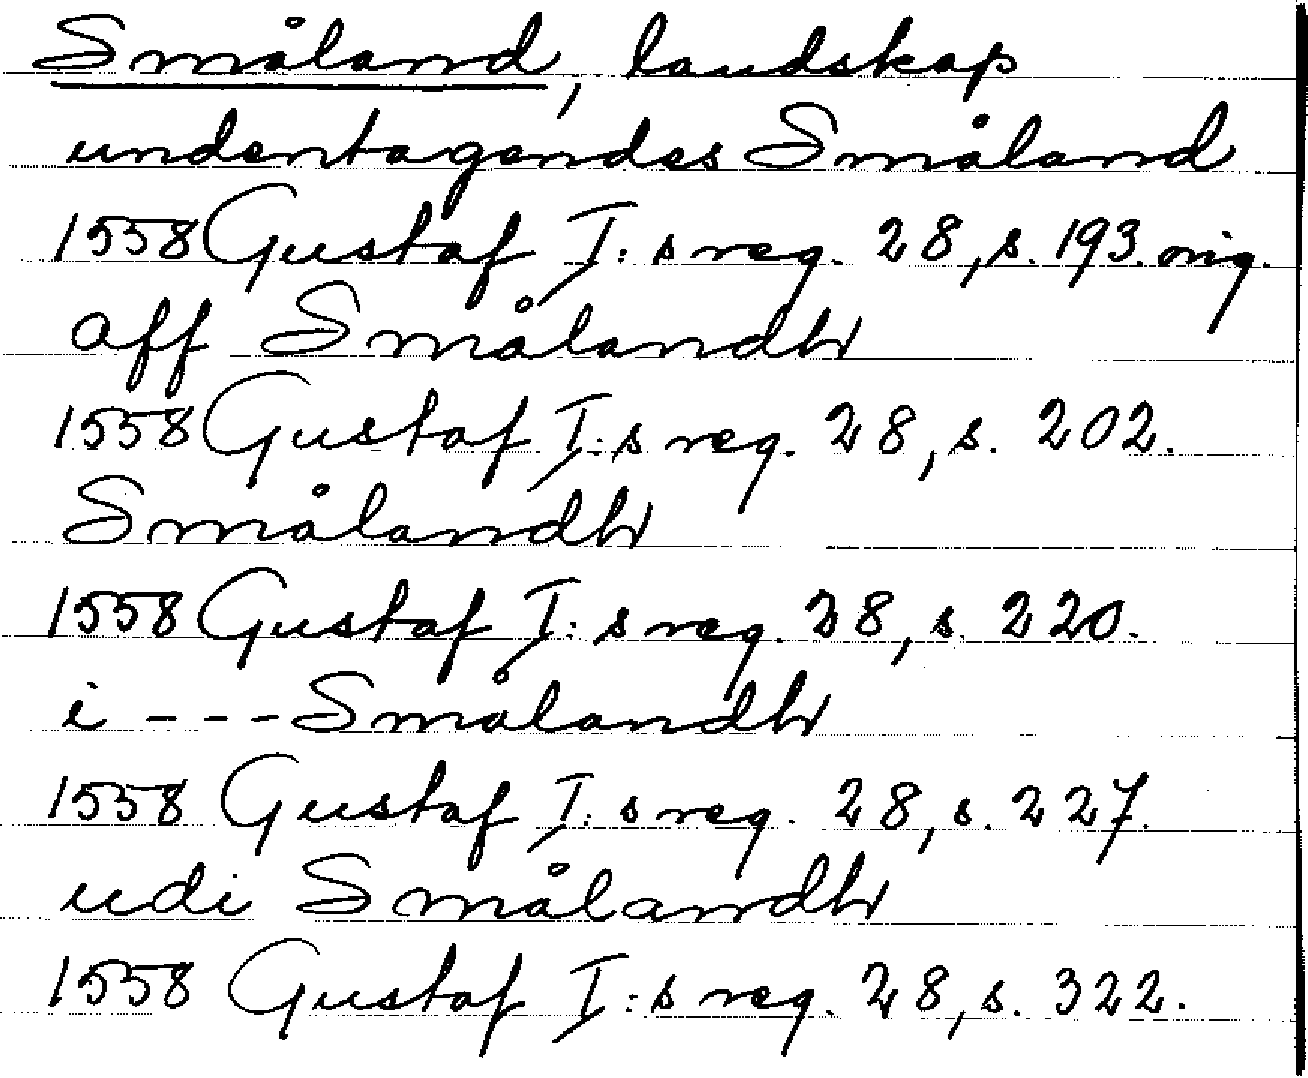 Småland, landskap
undentagandes Småland
1558 Gustaf I:s reg. 28, s. 193. orig.
aff Smålandh
1558 Gustaf I:s reg. 28, s. 202.
Smålandh
1558 Gustaf I:s reg. 28, s. 220.
i --- Smålandh
1558 Gustaf I:s reg. 28, s. 227.
udi Smålandh
1558 Gustaf I:s reg. 28, s. 322.